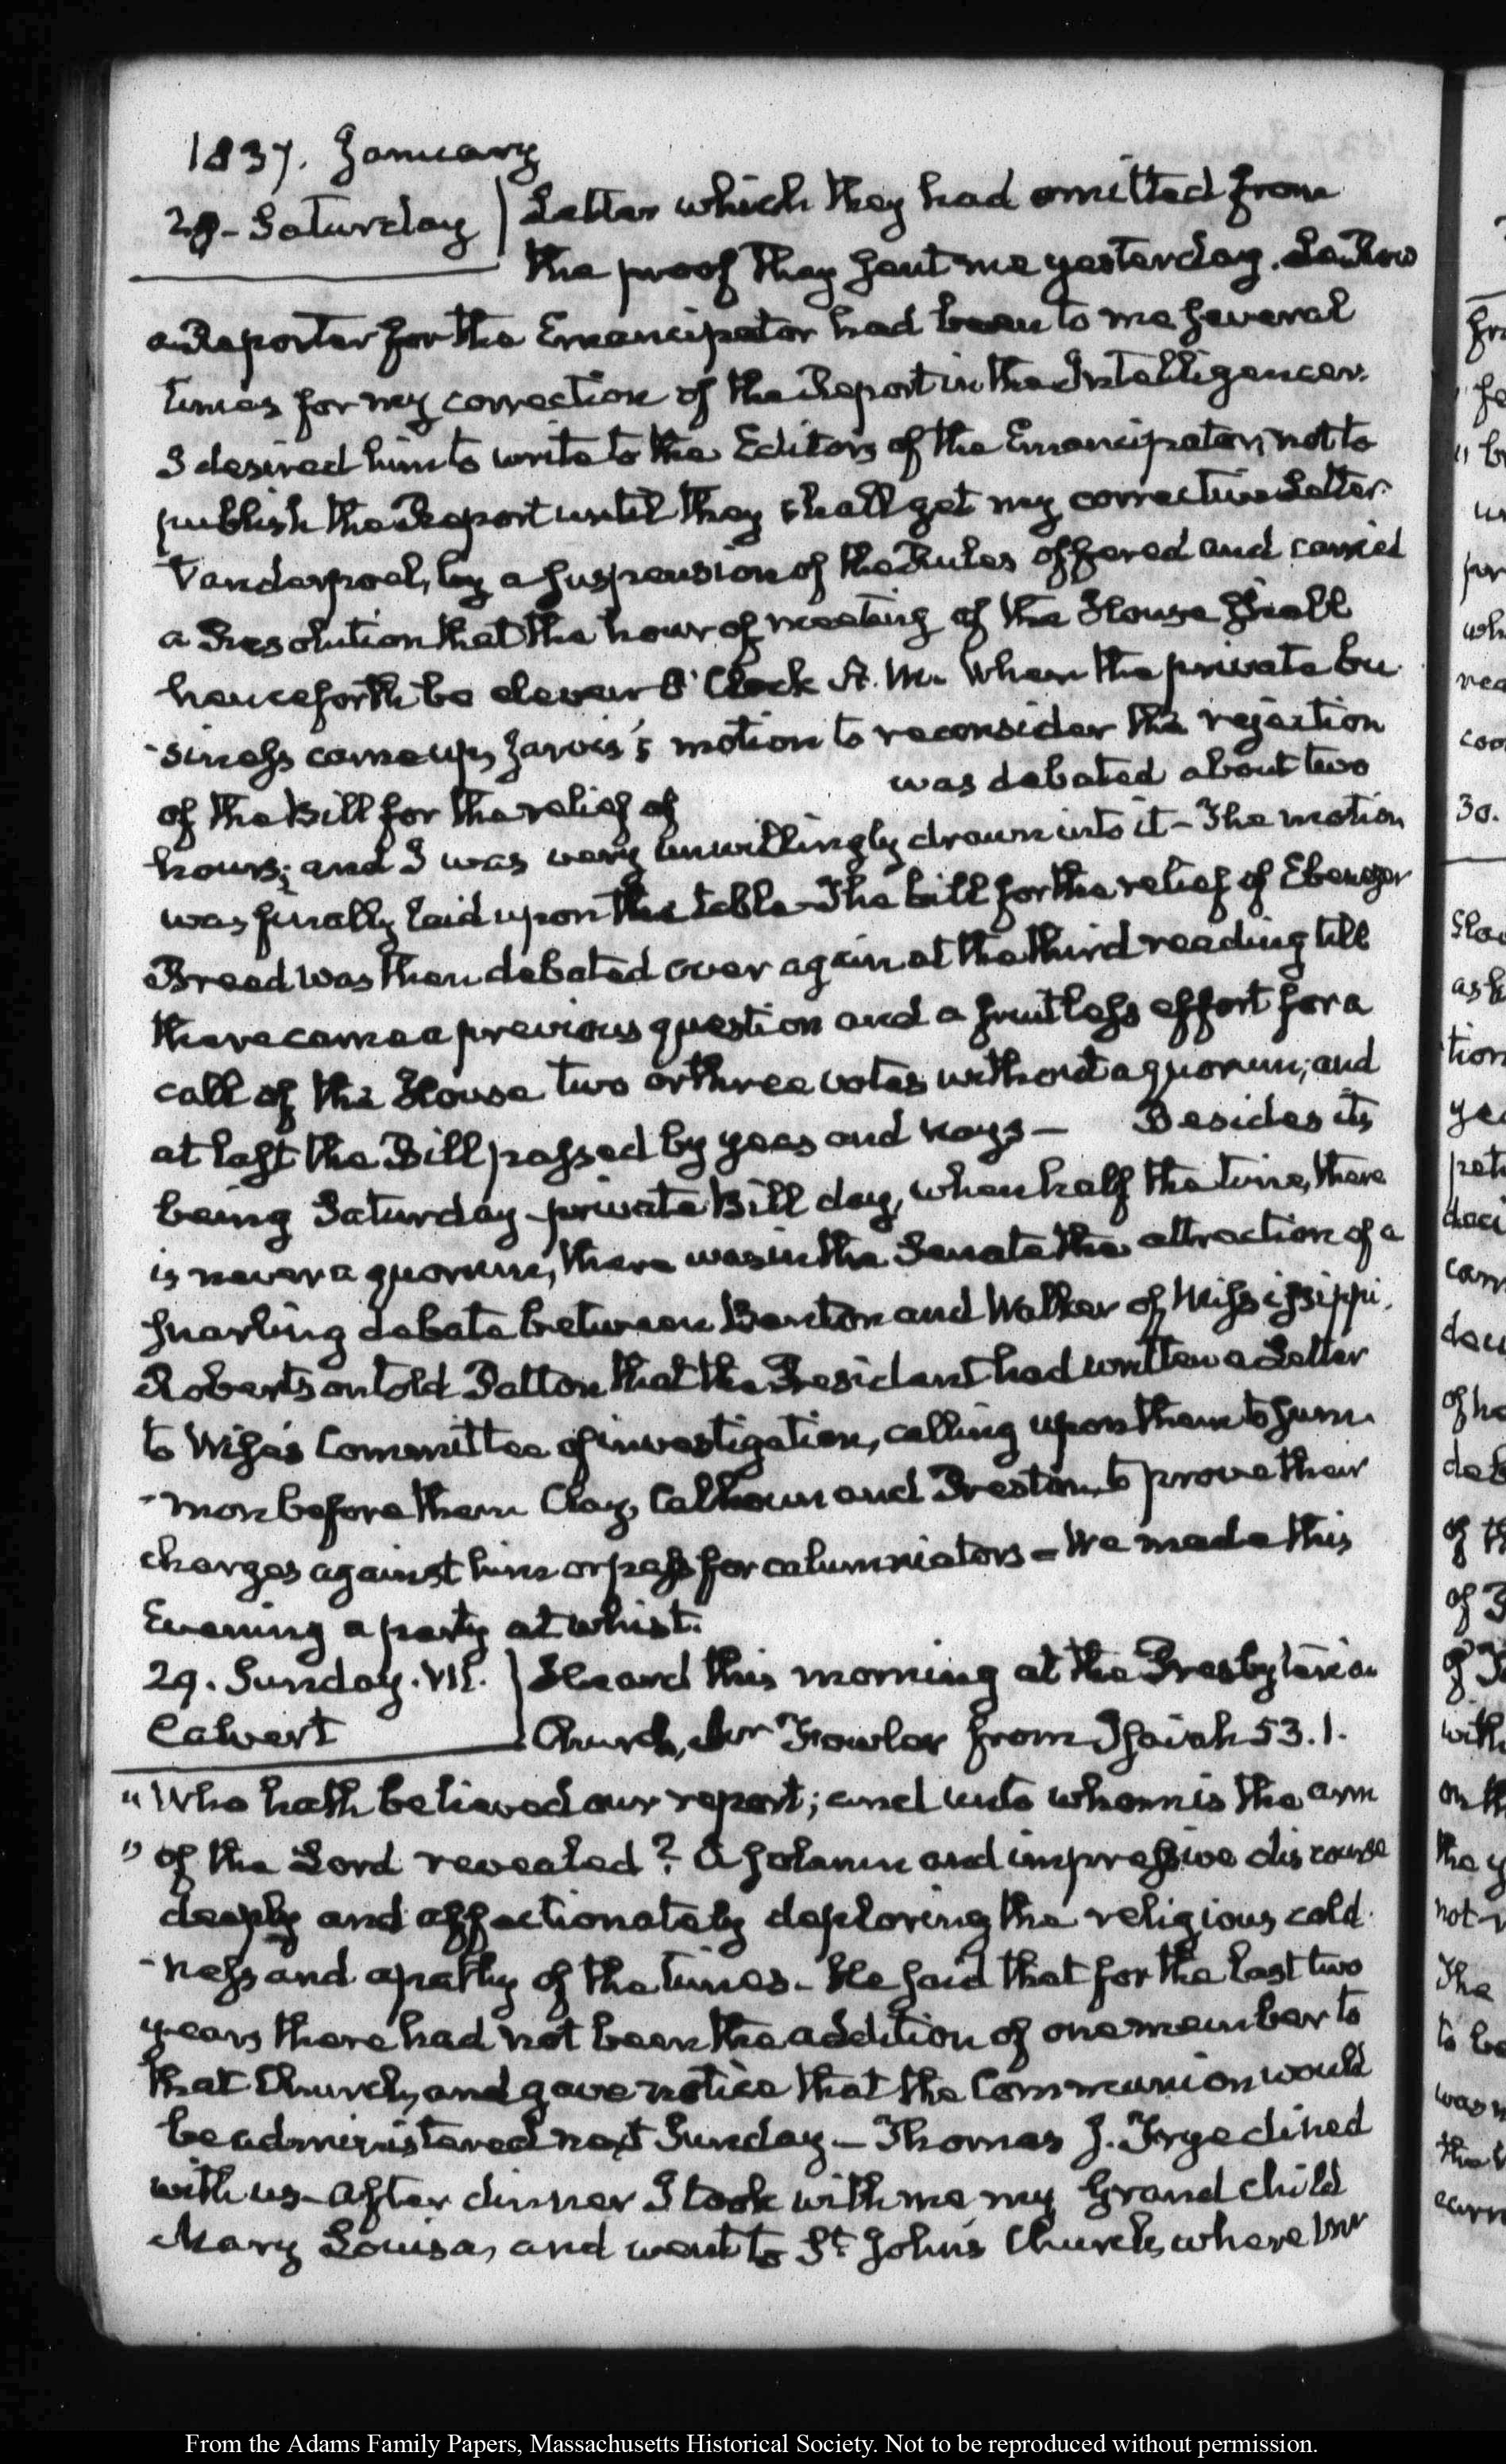 1837. January
28 - Saturday
Letter which they had omitted from
the proof they sent me yesterday.
a Reporter for the Emancipator had been to me several
times for my correction of the Report in the Intelligencer.
I desired him to write to the Editors of the Emancipator, not to
publish the Report until they shall get my corrective Letter.
Vanderpoel, by a suspension of the Rules offered and carried
a Resolution that the hour of meeting of the House shall
henceforth be eleven O'Clock A.M. When the private bu
-siness came up, Jarvis's motion to reconsider the rejection
of the Bill for the relief of was debated about two
hours; and I was very unwillingly drawn into it - The motion
was finally laid upon the table - The bill for the relief of Ebenezer
Breed was then debated over again at the third reading till
there came a previous question and a fruitless effort for a
call of the House two or three votes without a quorum; and
at last the Bill passed by yeas and nays - Besides its
being Saturday - private Bill day, when half the time, there
is never a quorum, there was in the Senate the attraction of a
snarling debate between Benton and Walker of Mississippi.
Robertson told Patton that the President had written a Letter
to Wise's Committee of investigation, calling upon them to sum
-mon before them Clay, Calhoun and Preston, to prove their
charges against him or pass for calumniators - We made this
Evening a party at whist.
29. Sunday. VII.
Calvert
Heard this morning at the Presbyterian
Church, Mr Fowler from Isaiah 53.1.
"Who hath believed our report; and unto whom is the arm
"of the Lord revealed? A solemn and impressive discourse
deeply and affectionately deploring the religious cold
-ness and apathy of the times - He said that for the last two
years there had not been the addition of one member to
that Church, and gave notice that the Communion would
be administered next Sunday - Thomas J. Frye dined
with us - After dinner I took with me my Grand child
Mary Louisa, and went to St. John's Church, where Mr
From the Adams Family Papers, Massachusetts Historical Society. Not to be reproduced without permission.